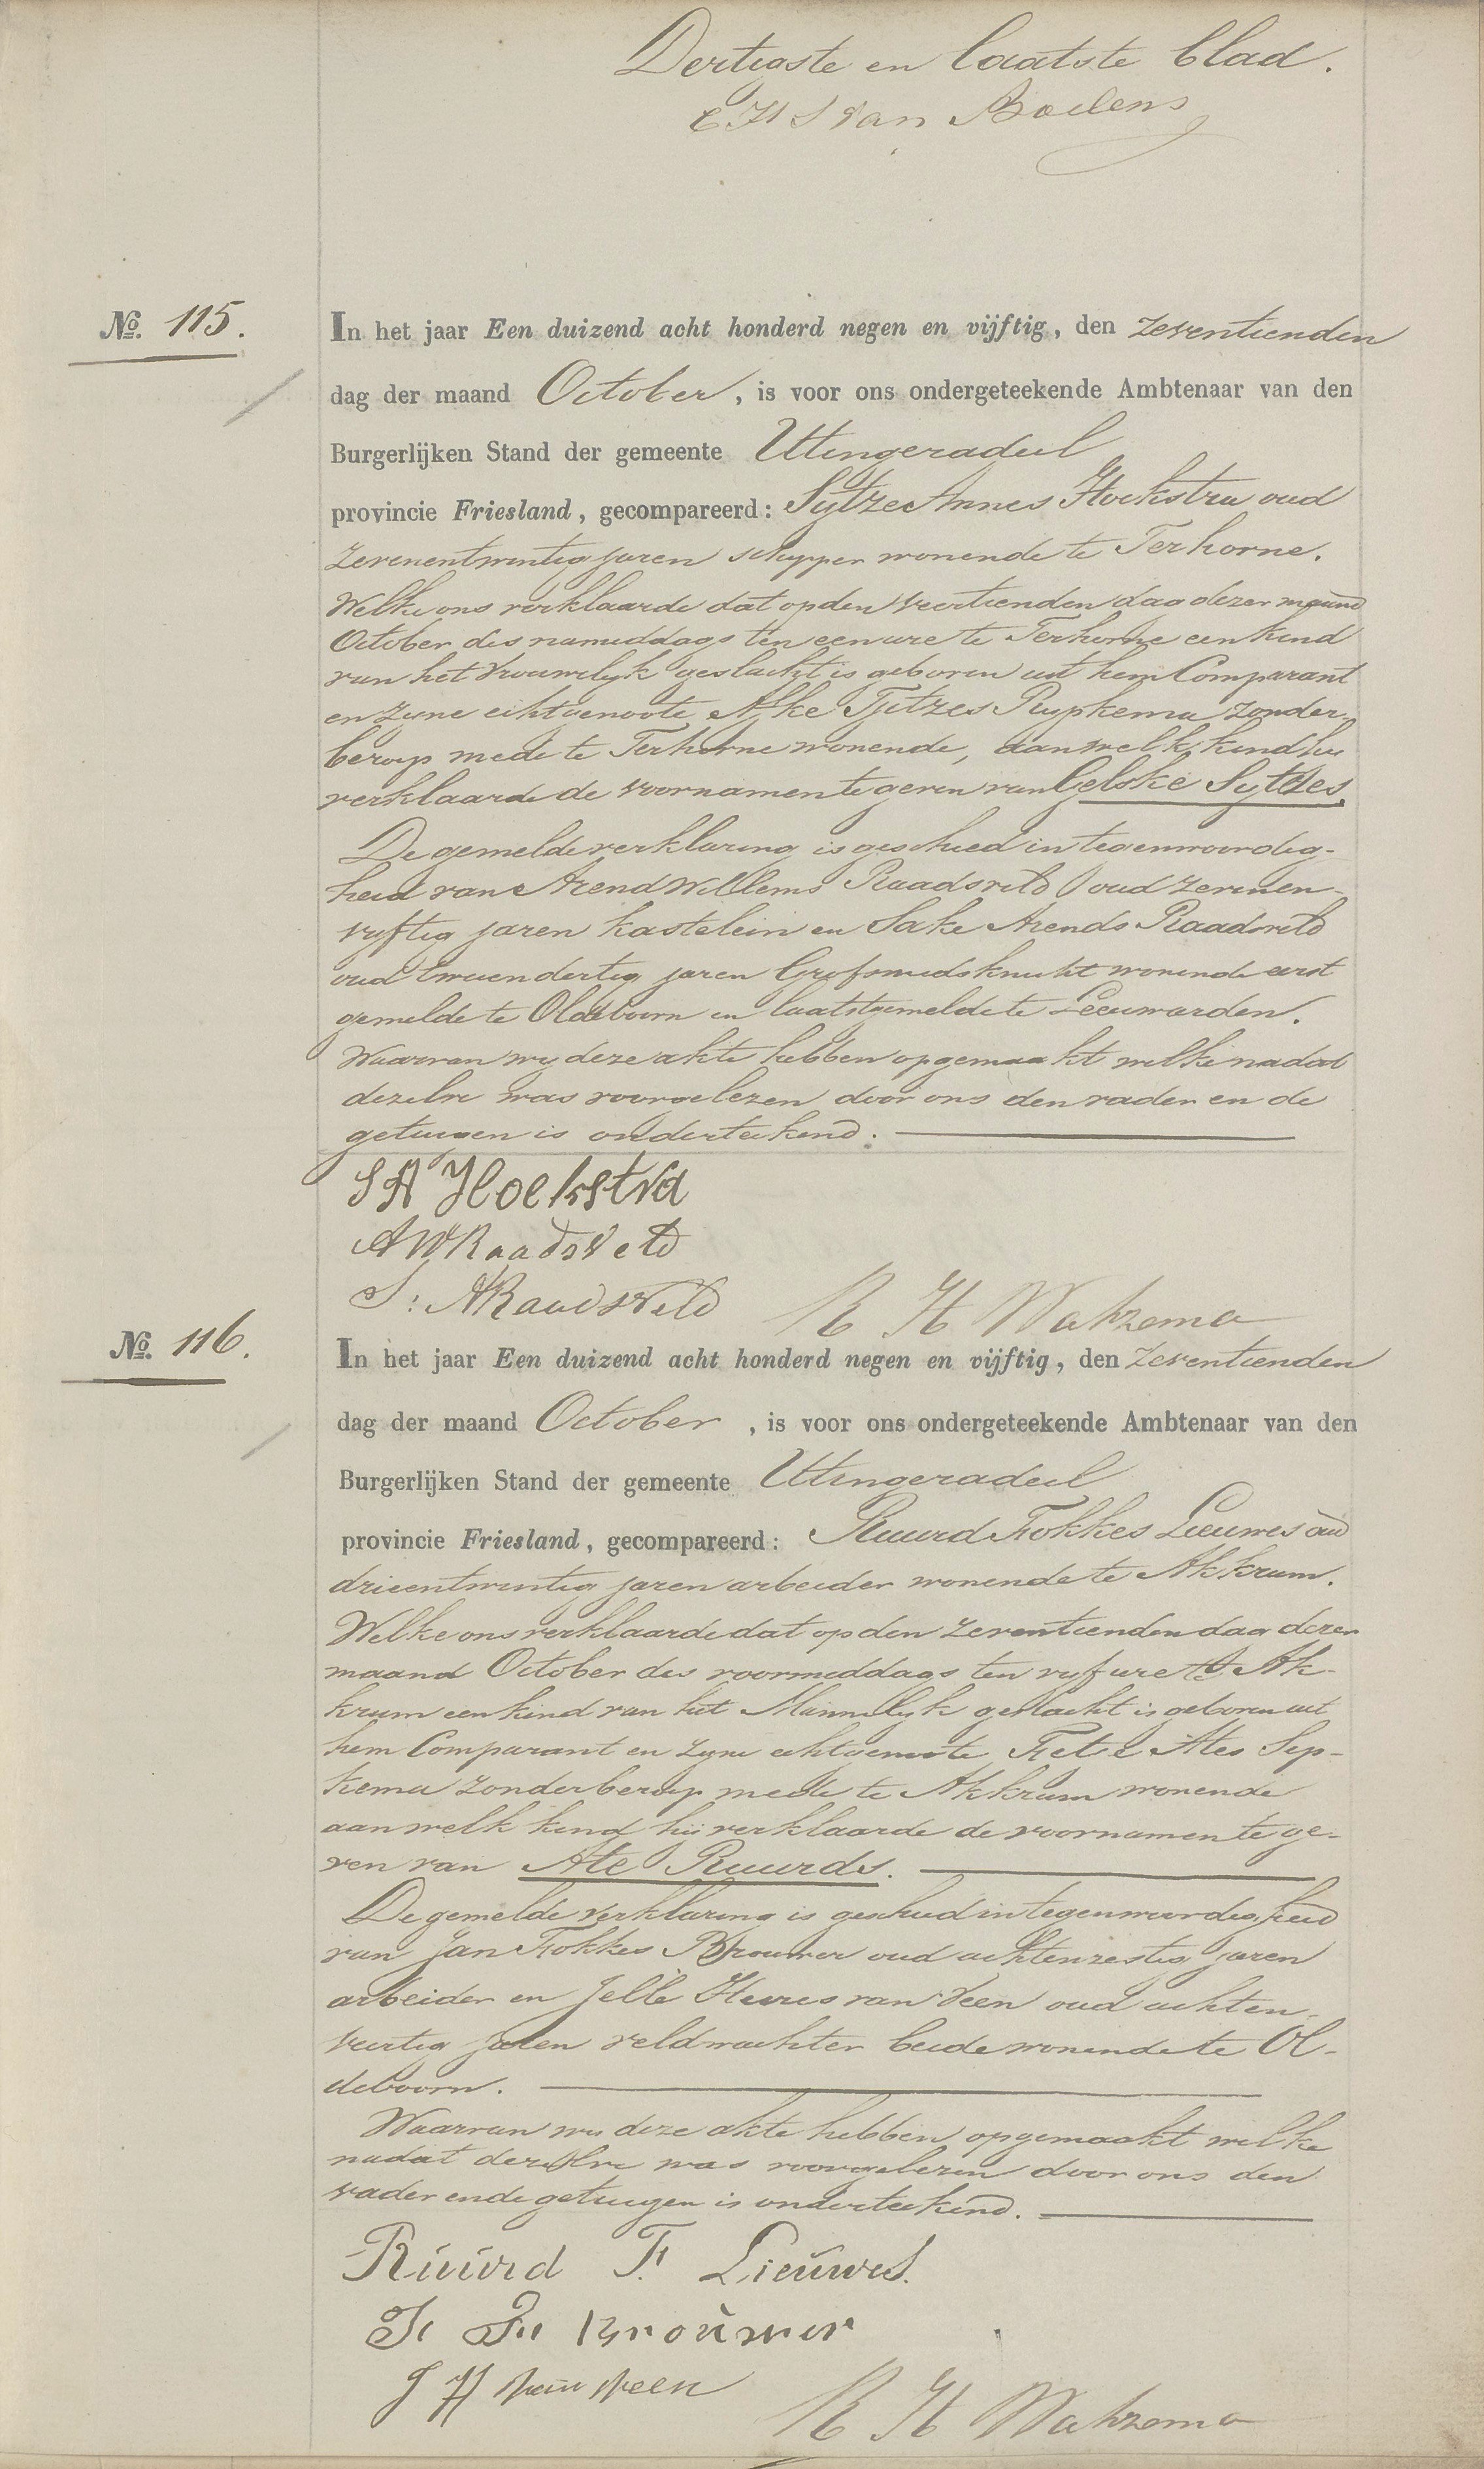 Dertigste en laatste blad.
van Boelens
No. 115.
In het jaar Een duizend acht honderd negen en vijftig, den zeventienden
dag der maand October, is voor ons ondergeteekende Ambtenaar van den
Burgerlijken Stand der gemeente Utingeradeel
provincie Friesland, gecompareerd: Sytze Annes Hoekstra oud
zevenentwintig jaren schipper wonende te Terhorne.
Welke ons verklaarde dat op den veertienden dag dezer maand
October des namiddags ten een ure te Terhorne een kind
van het Vrouwelyk geslacht is geboren uit hem Comparant
en zyne echtgenoote Afke Tjitzes Rypkema zonder
beroep mede te Terhorne wonende, aan welk kind hij
verklaarde de voornamen te geven van Gelske Sytzes.
De gemelde verklaring is geschied in tegenwoordig-
heid van Arend Willems Raadsveld oud zevenen-
vyftig jaren kastelein en Sake Arends Raadsveld
oud tweendertig jaren Grofsmidsknecht wonende eerst
gemelde te Oldeboorn en laatstgemelde te Leeuwarden.
Waarvan wy deze akte hebben opgemaakt welke nadat
dezelve was voorgelezen door ons den vader en de
getuigen is onderteekend.
S A Hoekstra
A W Raadsveld
S: A Raadsveld R H Watzema
No. 116.
In het jaar Een duizend acht honderd negen en vijftig, den zeventienden
dag der maand October, is voor ons ondergeteekende Ambtenaar van den
Burgerlijken Stand der gemeente Utingeradeel
provincie Friesland, gecompareerd: Ruurd Fokkes Lieuwes oud
drieentwintig jaren arbeider wonende te Akkrum.
Welke ons verklaarde dat op den zeventienden dag dezer
maand October des voormiddags ten vyf ure te Ak-
krum een kind van het Mannelyk geslacht is geboren uit
hem Comparant en zyne echtgenoote Fetje Ates Sep-
kema zonder beroep mede te Akkrum wonende
aan welk kind hij verklaarde de voornamen te ge-
ven van Ate Ruurds.
De gemelde verklaring is geschied in tegenwoordigheid
van Jan Fokkes Brouwer oud achtenzestig jaren
arbeider en Jelle Heeres van Veen oud achten-
veertig jaren veldwachter beide wonende te Ol-
deboorn.
Waarvan wy deze akte hebben opgemaakt welke
nadat dezelve was voorgelezen door ons den
vader en de getuigen is onderteekend.
Ruurd F. Lieuwes.
J F Brouwer
J H van Veen R H Watzema